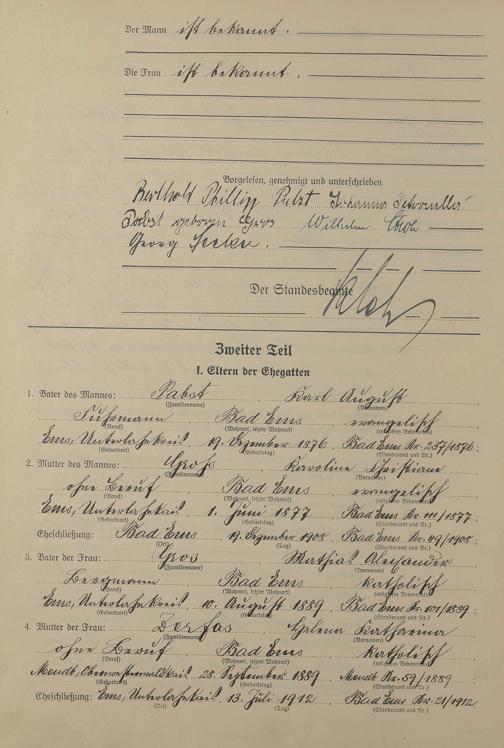 Der Mann ist bekannt.
Die Frau ist bekannt.
Vorgelesen, genehmigt und unterschrieben
Berthold Phillip Pabst Johanna
Pabst geborene Gros Wilhelm
Georg
Der Standesbeamte
Zweiter Teil
I. Eltern der Ehegatten
1. Vater des Mannes: Pabst Karl August
(Familienname) (Vornamen)
Fuhrmann Bad Ems evangelisch
(Beruf) (Wohnort, letzter Wohnort)
Ems, Unterlahnkreis, 19. Dezember 1876 Bad Ems Nr. 237/1876
(Geburtsort) (Geburtstag) (Standesamt und Nr.)
2. Mutter des Mannes: Karoline Christiane
(Familienname) (Vornamen)
ohne Beruf Bad Ems evangelisch
(Beruf) (Wohnort, letzter Wohnort)
Ems, Unterlahnkreis 1. Juni 1877 Bad Ems Nr. 111/1877
(Geburtsort) (Geburtstag) (Standesamt und Nr.)
Eheschließung: Bad Ems 19. Dezember 1908 Bad Ems Nr. 49/1908
(Ort) (Tag) (Standesamt und Nr.)
3. Vater der Frau: Gros Mathias Alexander
(Familienname) (Vornamen)
Bergmann Bad Ems katholisch
(Beruf) (Wohnort, letzter Wohnort)
Ems, Unterlahnkreis 10. August 1889 Bad Ems Nr. 101/1889
(Geburtsort) (Geburtstag) (Standesamt und Nr.)
4. Mutter der Frau: Helena Katharina
(Familienname) (Vornamen)
ohne Beruf Bad Ems katholisch
(Beruf) (Wohnort, letzter Wohnort)
28. September 1889 Nr. 59/1889
(Geburtsort) (Geburtstag) (Standesamt und Nr.)
Eheschließung: Ems, Unterlahnkreis, 13. Juli 1912 Bad Ems Nr. 21/1912
(Ort) (Tag) (Standesamt und Nr.)